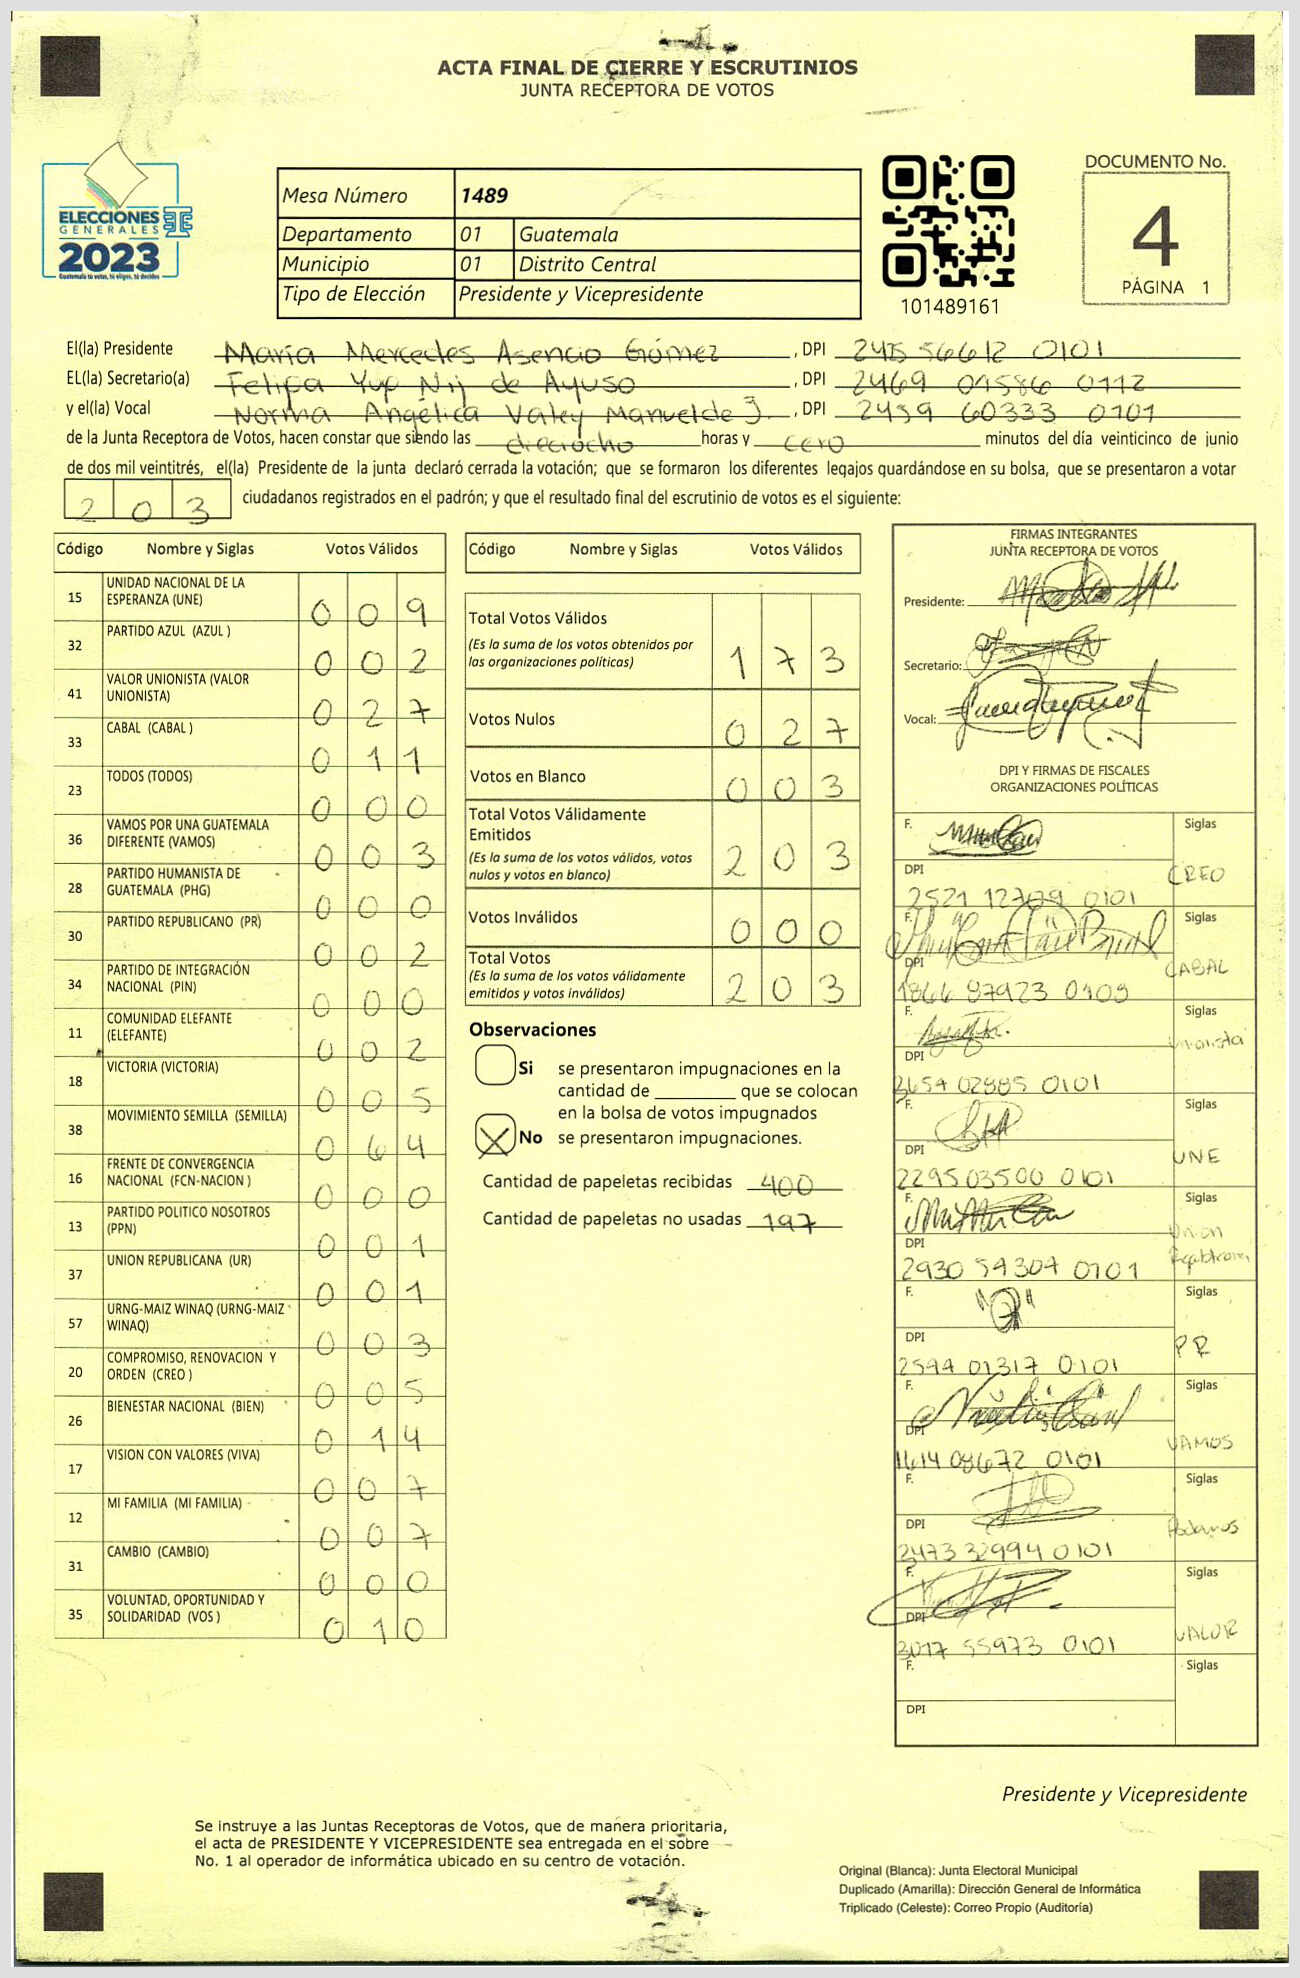 ACTA FINAL DE CIERRE Y ESCRUTINIOS
JUNTA RECEPTORA DE VOTOS
ELECCIONES
GENERALES
2023
Guatemala tú votas, tú eliges, tú decides
Mesa Número 1489
Departamento 01 Guatemala
Municipio 01 Distrito Central
Tipo de Elección Presidente y Vicepresidente
101489161
DOCUMENTO No.
4
PÁGINA 1
El(la) Presidente María Mercedes Asencio Gómez , DPI 2415 56612 0101
EL(la) Secretario(a) Felipa Yup Nij de Ayuso , DPI 2469 01586 0112
y el(la) Vocal Norma Angélica Valey Manuelde J. , DPI 2459 60333 0101
de la Junta Receptora de Votos, hacen constar que siendo las dieciocho horas y cero minutos del día veinticinco de junio
de dos mil veintitrés, el(la) Presidente de la junta declaró cerrada la votación; que se formaron los diferentes legajos quardándose en su bolsa, que se presentaron a votar
203 ciudadanos registrados en el padrón; y que el resultado final del escrutinio de votos es el siguiente:
Código Nombre y Siglas Votos Válidos
15 UNIDAD NACIONAL DE LA ESPERANZA (UNE) 009
32 PARTIDO AZUL (AZUL ) 002
41 VALOR UNIONISTA (VALOR UNIONISTA) 027
33 CABAL (CABAL ) 011
23 TODOS (TODOS) 000
36 VAMOS POR UNA GUATEMALA DIFERENTE (VAMOS) 003
28 PARTIDO HUMANISTA DE GUATEMALA (PHG) 000
30 PARTIDO REPUBLICANO (PR) 002
34 PARTIDO DE INTEGRACIÓN NACIONAL (PIN) 000
11 COMUNIDAD ELEFANTE (ELEFANTE) 002
18 VICTORIA (VICTORIA) 005
38 MOVIMIENTO SEMILLA (SEMILLA) 064
16 FRENTE DE CONVERGENCIA NACIONAL (FCN-NACION ) 000
13 PARTIDO POLITICO NOSOTROS (PPN) 001
37 UNION REPUBLICANA (UR) 001
57 URNG-MAIZ WINAQ (URNG-MAIZ WINAQ) 003
20 COMPROMISO, RENOVACION Y ORDEN (CREO ) 005
26 BIENESTAR NACIONAL (BIEN) 014
17 VISION CON VALORES (VIVA) 007
12 MI FAMILIA (MI FAMILIA) 007
31 CAMBIO (CAMBIO) 000
35 VOLUNTAD, OPORTUNIDAD Y SOLIDARIDAD (VOS ) 010
Código Nombre y Siglas Votos Válidos
Total Votos Válidos 173
(Es la suma de los votos obtenidos por
las organizaciones políticas)
Votos Nulos 027
Votos en Blanco 003
Total Votos Válidamente
Emitidos 203
(Es la suma de los votos válidos, votos
nulos y votos en blanco)
Votos Inválidos 000
Total Votos 203
(Es la suma de los votos válidamente
emitidos y votos inválidos)
Observaciones
Si se presentaron impugnaciones en la
cantidad de ________ que se colocan
en la bolsa de votos impugnados
No se presentaron impugnaciones.
Cantidad de papeletas recibidas 400
Cantidad de papeletas no usadas 197
FIRMAS INTEGRANTES
JUNTA RECEPTORA DE VOTOS
Presidente:
Secretario:
Vocal:
DPI Y FIRMAS DE FISCALES
ORGANIZACIONES POLÍTICAS
F. Siglas
DPI CREO
2521 12709 0101
F. Siglas
DPI CABAL
1866 87923 0109
F. Siglas
DPI Unionista
3654 02885 0101
F. Siglas
DPI UNE
2295 03500 0101
F. Siglas
DPI Union
2930 54304 0101
F. Siglas
DPI PR
2594 01317 0101
F. Siglas
DPI VAMOS
1614 08672 0101
F. Siglas
DPI Podemos
2473 32994 0101
F. Siglas
DPI VALOR
3017 55973 0101
F. Siglas
DPI
Presidente y Vicepresidente
Se instruye a las Juntas Receptoras de Votos, que de manera prioritaria,
el acta de PRESIDENTE Y VICEPRESIDENTE sea entregada en el sobre
No. 1 al operador de informática ubicado en su centro de votación.
Original (Blanca): Junta Electoral Municipal
Duplicado (Amarilla): Dirección General de Informática
Triplicado (Celeste): Correo Propio (Auditoría)